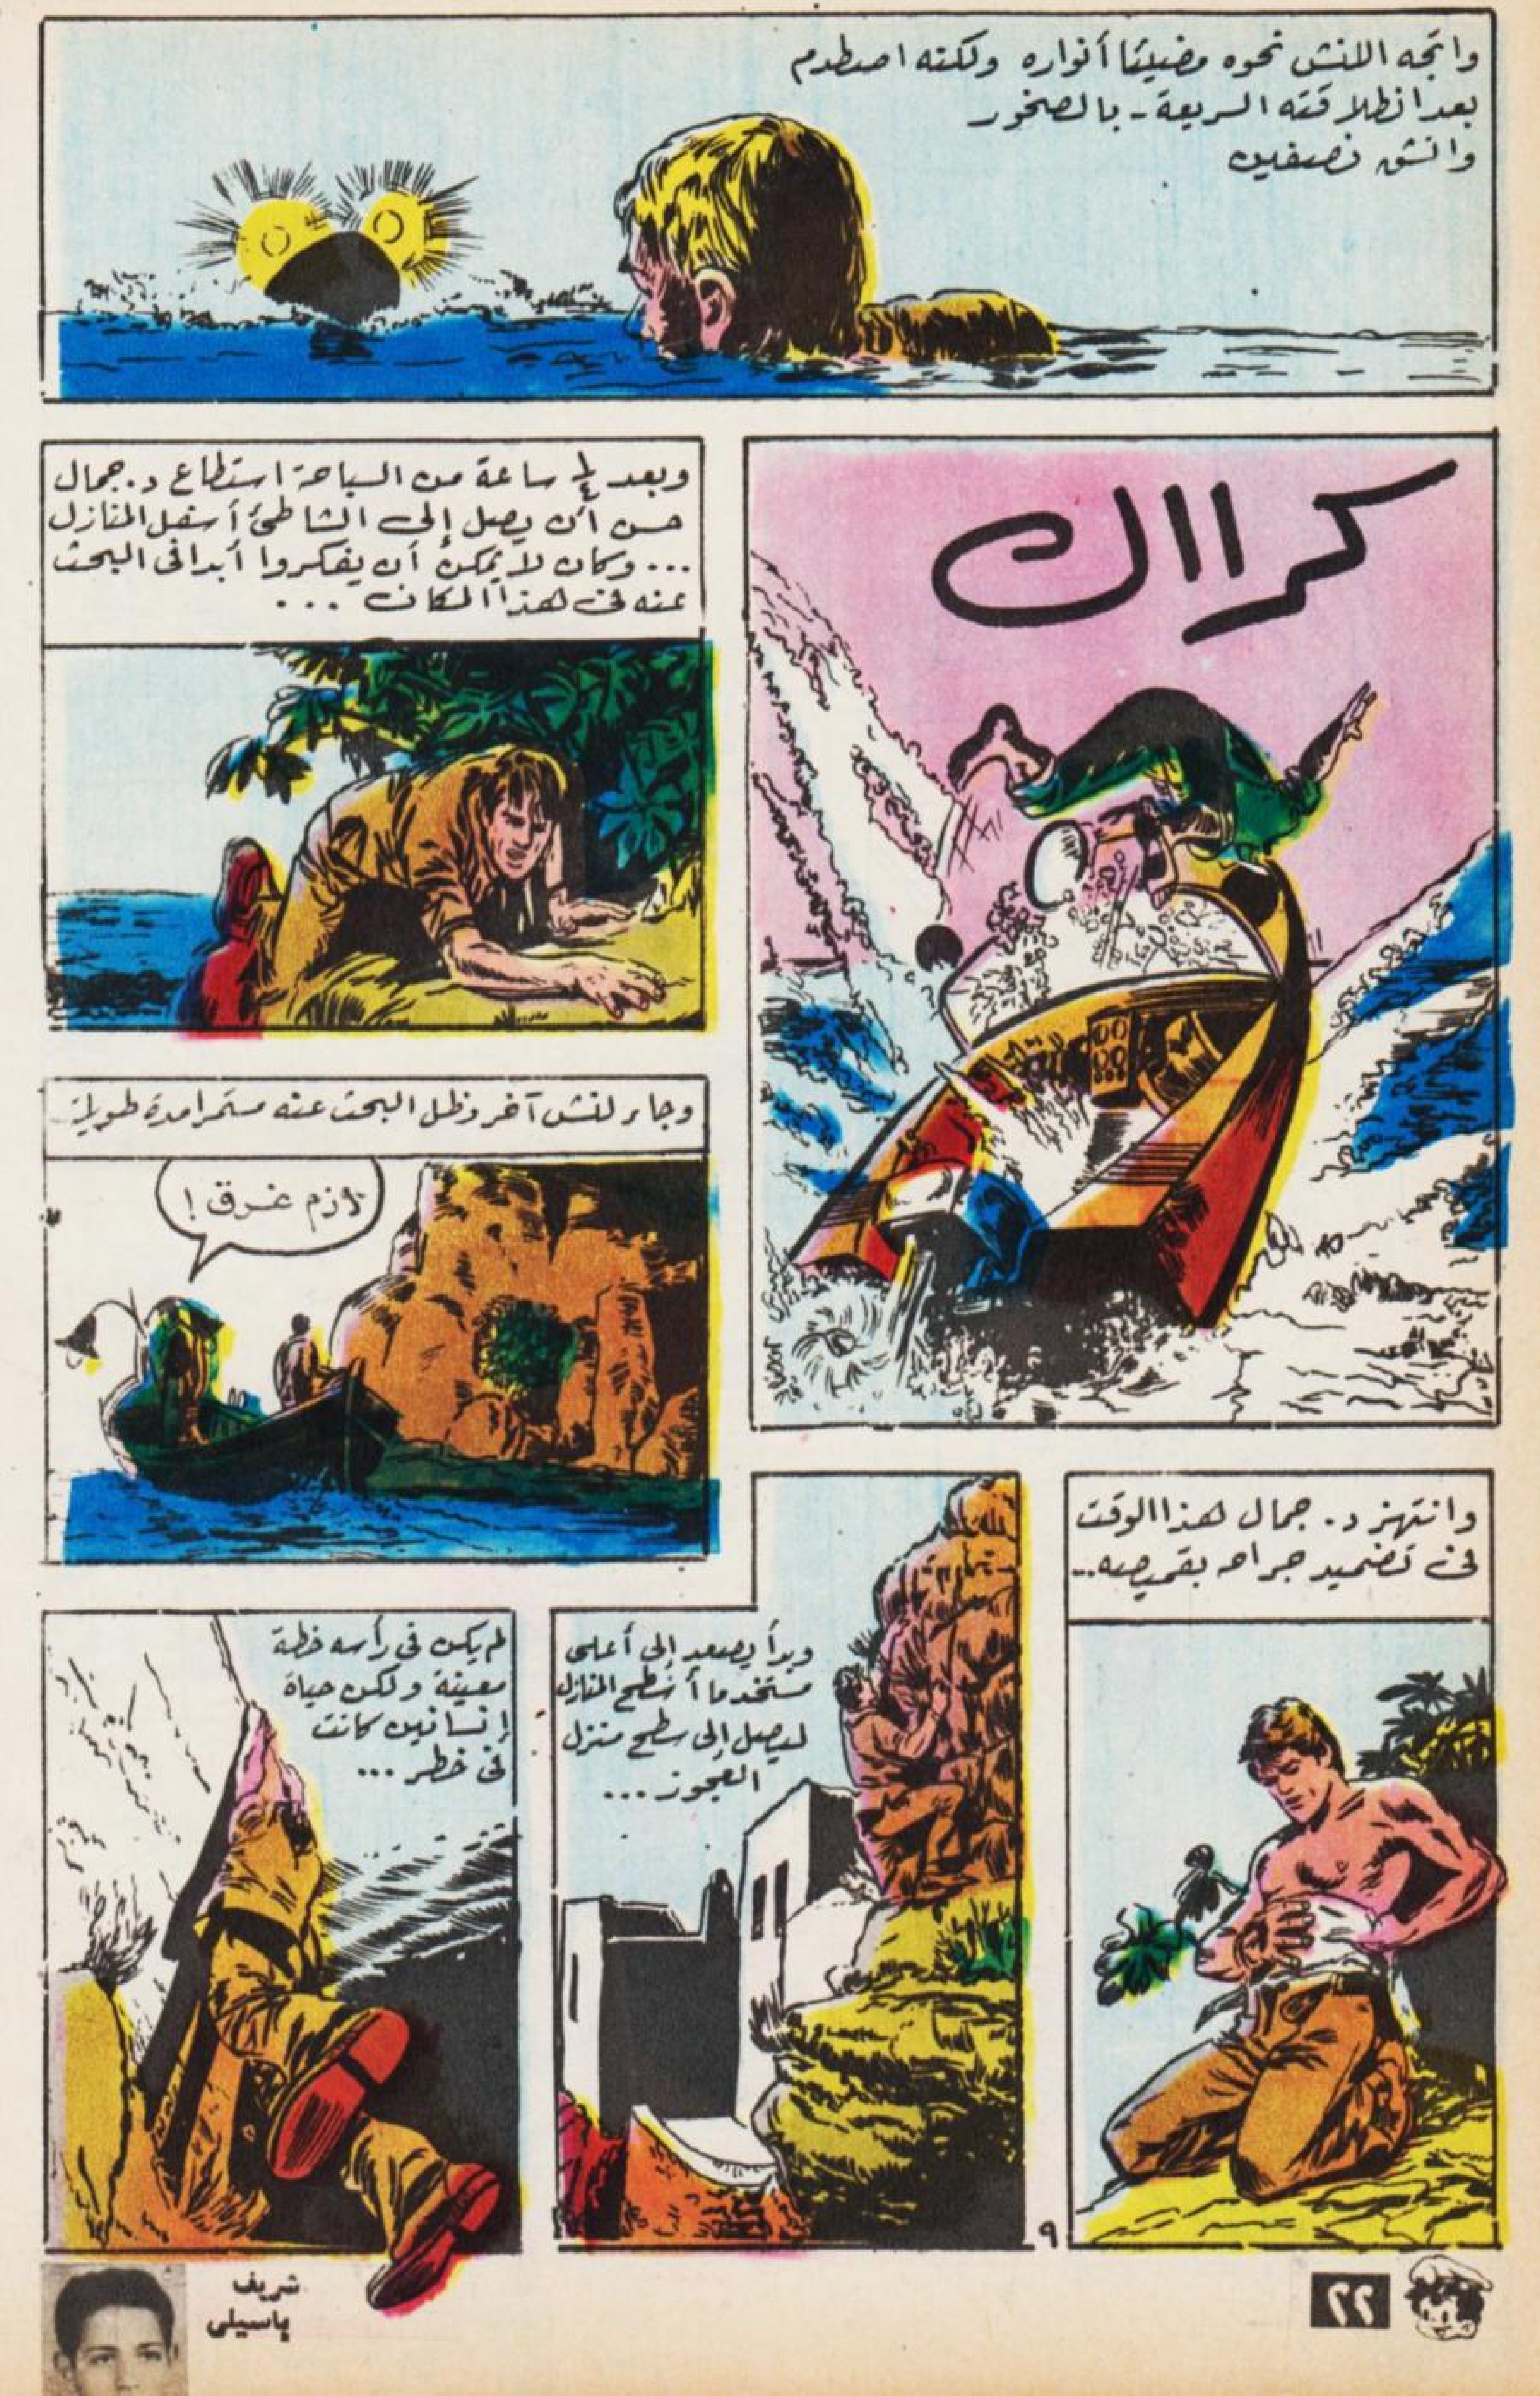 واتجه اللانش نحوه مضيئا أنواره ولكنه اصطدم
بعد انطلاقته السريعة - بالصخور
وانشق نصفين
كرااك
وبعد ¼ ساعة من السباحة استطاع د. جمال
حسن أن يصل إلى الشاطئ أسفل المنازل
... وكان لا يمكن أن يفكروا أبدا فى البحث
عنه فى هذا المكان ...
وجاء لنش آخر وظل البحث عنه مستمرا مدة طويلة
لازم غرق !
وانتهز د. جمال هذا الوقت
فى تضميد جراحه بقميصه...
وبدأ يصعد إلى أعلى
مستخدما أسطح المنازل
ليصل إلى سطح منزل
العجوز ...
لم يكن فى رأسه خطة
معينة ولكن حياة
إنسانين كانت
فى خطر ...
٩
شريف
باسيلى
٢٢